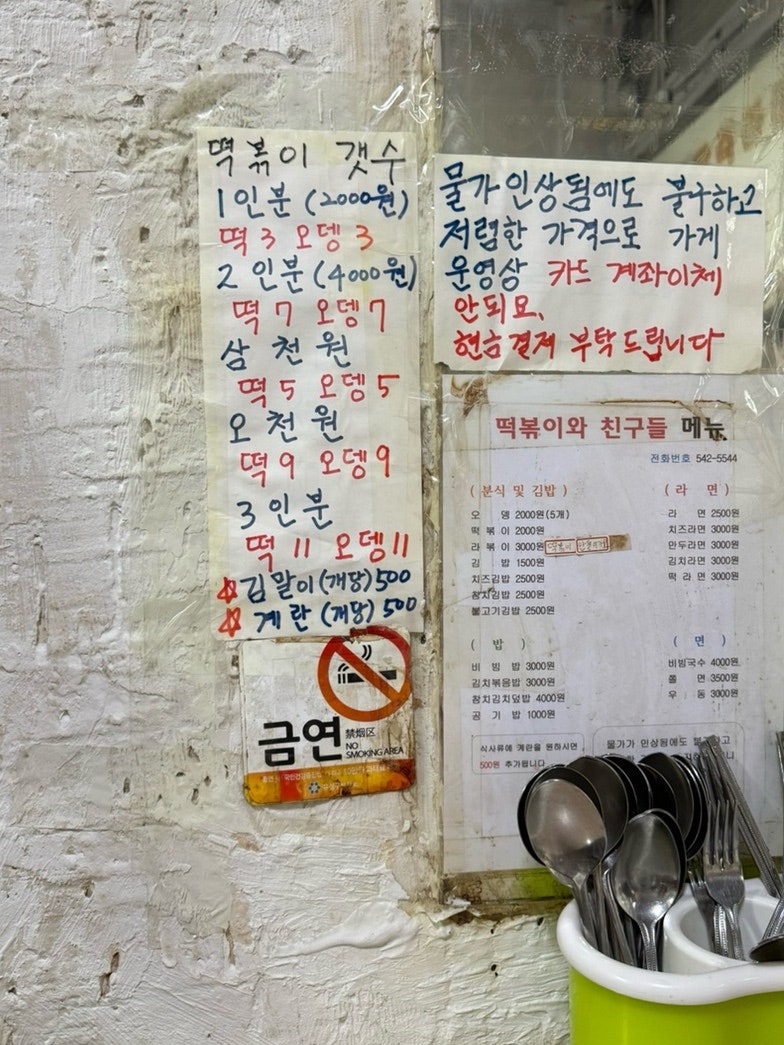 떡볶이 갯수
1인분 (2000원)
떡 3 오뎅 3
2인분 (4000원)
떡 7 오뎅 7
삼천원
떡 5 오뎅 5
오천원
떡 9 오뎅 9
3인분
떡 11 오뎅 11
김말이 (개당) 500
계란 (개당) 500
물가 인상됨에도 불구하고
저렴한 가격으로 가게
운영상 카드 계좌이체
안되요.
현금결제 부탁드립니다
떡볶이와 친구들 메뉴
전화번호 542-5544
( 분식 및 김밥 )
오 뎅 2000원(5개)
떡 볶 이 2000원
라 볶 이 3000원
김 밥 1500원
치즈김밥 2500원
참치김밥 2500원
불고기김밥 2500원
( 라 면 )
라 면 2500원
치즈라면 3000원
만두라면 3000원
김치라면 3000원
떡 라 면 3000원
( 밥 )
비 빔 밥 3000원
김치볶음밥 3000원
참치김치덮밥 4000원
공 기 밥 1000원
( 면 )
비빔국수 4000원
쫄 면 3500원
우 동 3000원
식사류에 계란을 원하시면
500원 추가됩니다
물가가 인상됨에도 불구하고
금연
禁烟区
NO
SMOKING AREA